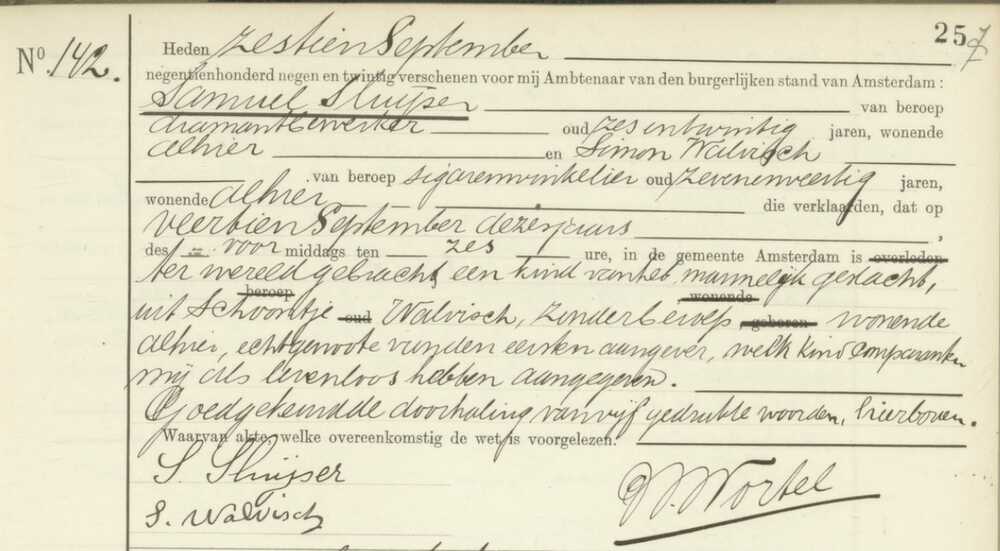 257
No. 142. Heden zestien September
negentienhonderd negen en twintig verschenen voor mij Ambtenaar van den burgerlijken stand van Amsterdam:
Samuel Sluijser van beroep
diamantbewerker oud zes en twintig jaren, wonende
alhier en Simon Walvisch
van beroep sigarenwinkelier oud zevenenveertig jaren,
wonende alhier die verklaarden, dat op
veertien September dezes jaars,
des voor middags ten zes ure, in de gemeente Amsterdam is overleden
ter wereld gebracht een kind van het mannelijk geslacht,
beroep wonende
uit Schoontje oud Walvisch, zonder beroep, geboren wonende
alhier, echtgenoote van den eersten aangever, welk kind comparanten
mij als levenloos hebben aangegeven.
Goedgekeurd de doorhaling van vijf gedrukte woorden, hierboven.
Waarvan akte, welke overeenkomstig de wet is voorgelezen.
S. Sluijser
S. Walvisch
Wortel